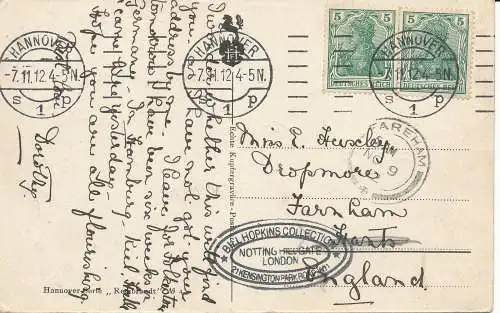 I wonder whether this will find
you as I have not got your
address by me. I leave for Folkestone
tomorrow. I have been six weeks in
Germany - in Hamburg - Kiel, Halle
I came here yesterday.
Hope you are all flourishing
Dorothy.
HANNOVER
-7.11.12.4-5N.
S 1 p
HANNOVER
-7.11.12.4-5N.
S 1 p
HANNOVER
-7.11.12.4-5N.
S 1 p
5 5
DEUTSCHES REICH
5 5
DEUTSCHES REICH
AREHAM
9
Echte Kupfergravüre-Post
Miss E. Huxley
Dropmore
Farnham
Hants
England
BILL HOPKINS COLLECTION
NOTTING HILL GATE
LONDON
21 KENSINGTON PARK ROAD W11
Hannover-Serie „Rembrandt"